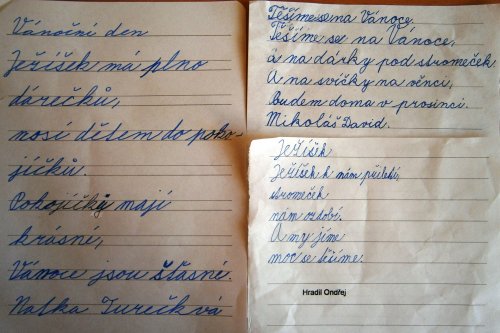 Vánoční den
Ježíšek má plno
dárečků,
nosí dětem do poko-
jíčků.
Pokojíčky mají
krásné,
Vánoce jsou šťasné.
Natka Turečková
Těšíme se na Vánoce.
Těšíme se na Vánoce,
a na dárky pod stromeček
A na svíčky na věnci,
budem doma v prosinci.
Mikoláš David.
Ježíšek
Ježíšek k nám přiletí,
stromeček
nám ozdobí.
A my jíme
moc se těšíme.
Hradil Ondřej